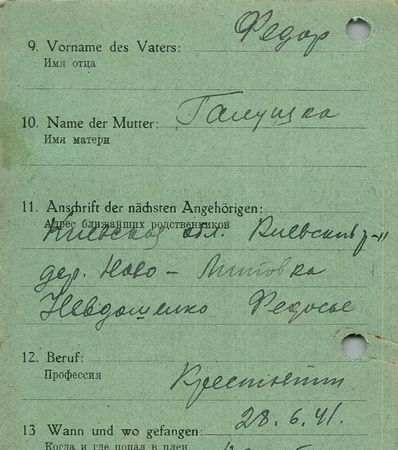 9. Vorname des Vaters: Федор
Имя отца
10. Name der Mutter: Галушка
Имя матери
11. Anschrift der nächsten Angehörigen:
Адрес ближайших родственников
Киевская обл. Киевский р-н
дер. Ново-
Федосье
12. Beruf:
Профессия
28.6.41.
13 Wann und wo gefangen:
Когда и где попал в плен